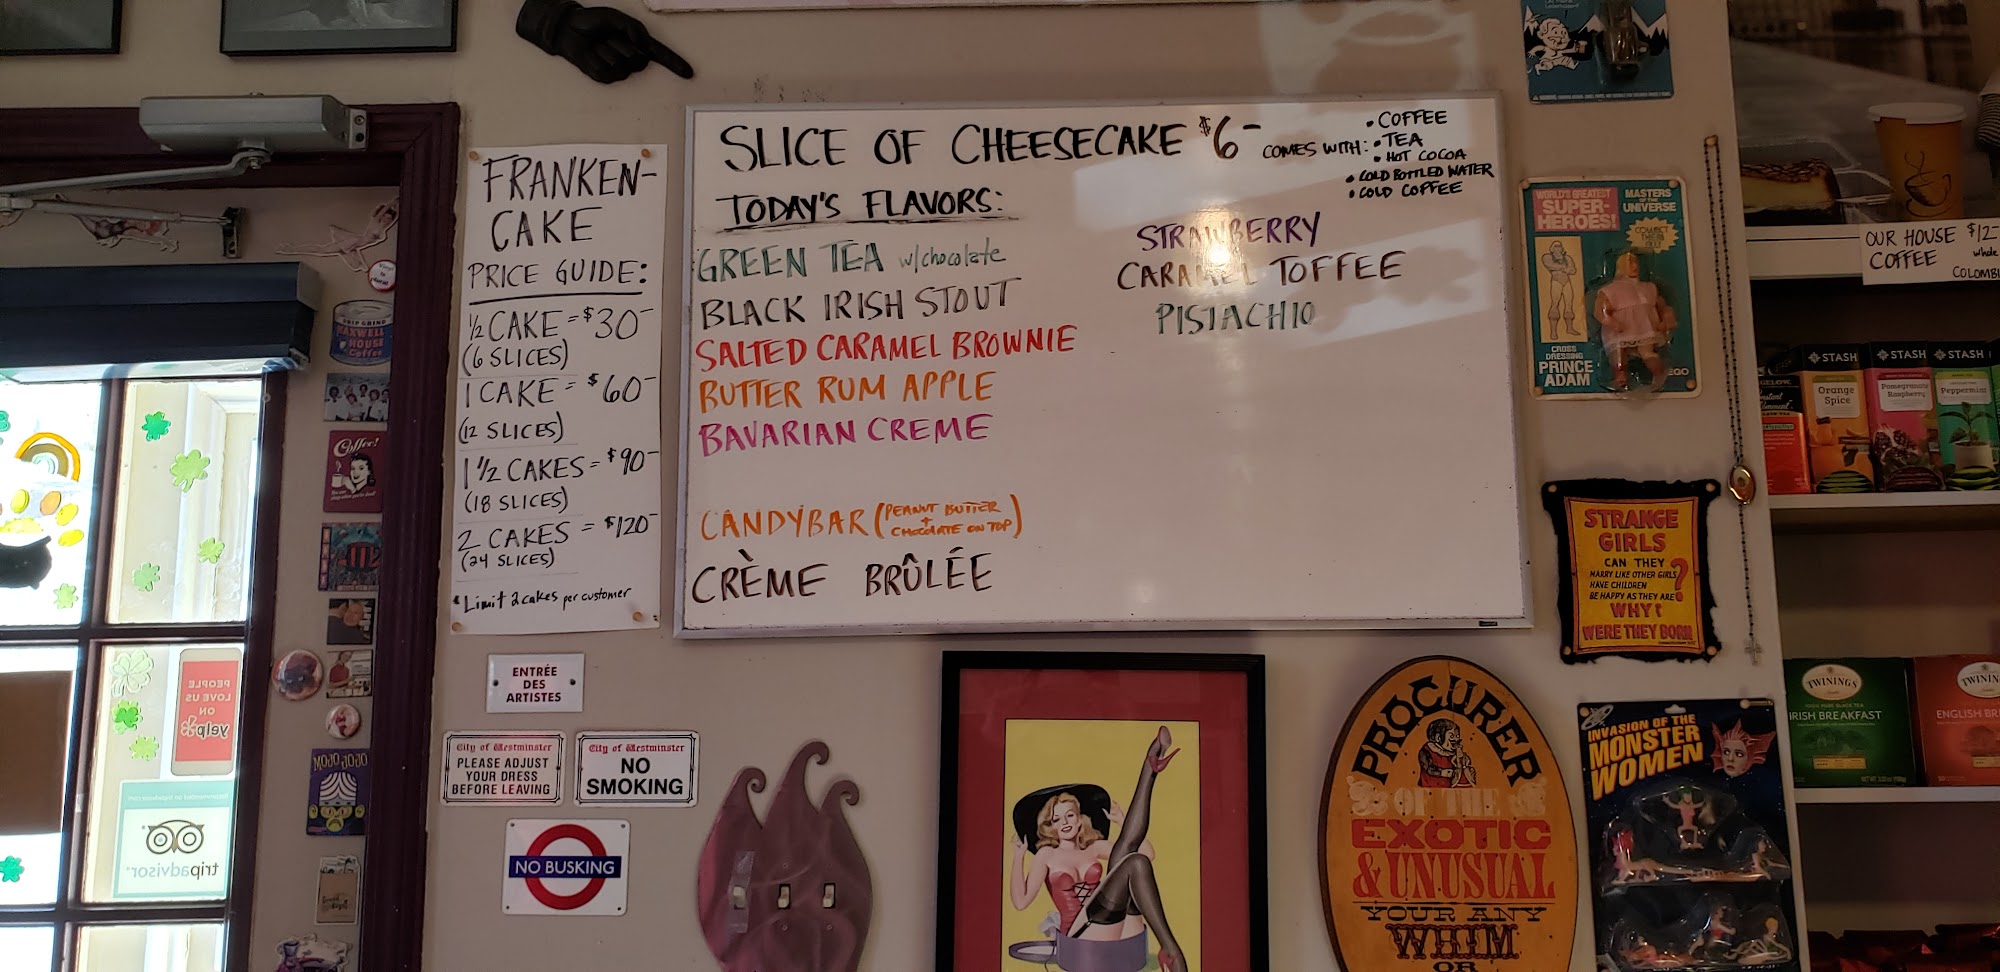 FRANKEN-
CAKE
PRICE GUIDE:
1/2 CAKE = $30-
(6 SLICES)
1 CAKE = $60-
(12 SLICES)
1 1/2 CAKES = $90-
(18 SLICES)
2 CAKES = $120-
(24 SLICES)
* Limit 2 cakes per customer
SLICE OF CHEESECAKE $6-
COMES WITH:
• COFFEE
• TEA
• HOT COCOA
• COLD BOTTLED WATER
• COLD COFFEE
TODAY'S FLAVORS:
GREEN TEA w/chocolate
BLACK IRISH STOUT
SALTED CARAMEL BROWNIE
BUTTER RUM APPLE
BAVARIAN CREME
CANDYBAR (PEANUT BUTTER
+
CHOCOLATE ON TOP)
CRÈME BRÛLÉE
STRAWBERRY
CARAMEL TOFFEE
PISTACHIO
MAXWELL
HOUSE
Coffee
Coffee!
MOJO JOJO
PEOPLE
LOVE US
ON
yelp
tripadvisor
ENTRÉE
DES
ARTISTES
City of Westminster
PLEASE ADJUST
YOUR DRESS
BEFORE LEAVING
City of Westminster
NO
SMOKING
NO BUSKING
WORLD'S GREATEST
SUPER-
HEROES!
MASTERS
OF THE
UNIVERSE
CROSS
DRESSING
PRINCE
ADAM
EGO
STRANGE
GIRLS
CAN THEY
MARRY LIKE OTHER GIRLS
HAVE CHILDREN
BE HAPPY AS THEY ARE
?
WHY?
WERE THEY BORN
PROCURER
OF THE
EXOTIC
& UNUSUAL
YOUR ANY
WHIM
OR
INVASION OF THE
MONSTER
WOMEN
OUR HOUSE $12-
COFFEE whole
COLOMBI
STASH
Orange
Spice
STASH
Pomegranate
Raspberry
STASH
Peppermint
TWININGS
IRISH BREAKFAST
TWININ
ENGLISH BR